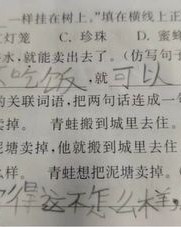 一样挂在树上。”填在横线上正
灯笼 C. 珍珠 D. 蜜蜂
水，就能卖出去了。(仿写句子
吃饭，就可以
的关联词语，把两句话连成一句
卖掉。 青蛙搬到城里去住。
泥塘卖掉，他就搬到城里去住
么样。 青蛙想把泥塘卖掉。(
得这不怎么样，